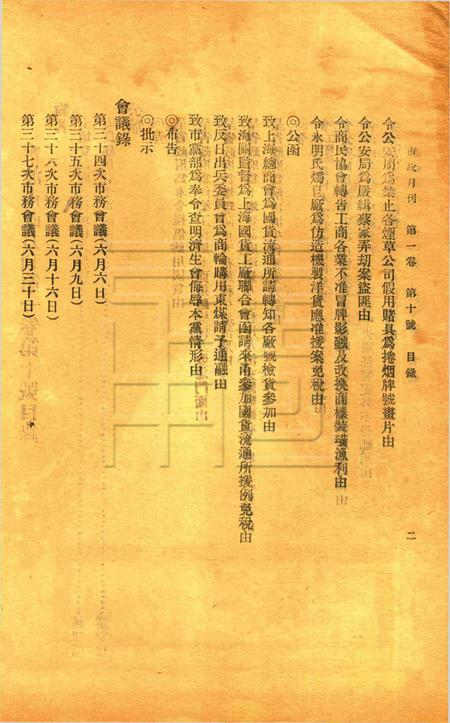 市政月刊 第一卷 第十號 目錄 二
令公安局為禁止各煙草公司假用賭具為捲烟牌號畫片由
令公安局為嚴緝蔡家弄刧案盜匪由
令商民協會轉告工商各業不准冒牌影戤及改換商標裝璜漁利由
令永明氏燭皂廠為仿造機製洋貨應准援案免稅由
◎公函
致上海總商會為國貨流通所請轉知各廠號檢貨參加由
致海關監督為上海國貨工廠聯合會函請來甬參加國貨流通所援例免稅由
致反日出兵委員會為商輪購用東煤請予通融由
致市黨部為奉令查明濟生會侮辱本黨情形由
◎布告
◎批示
會議錄
第三十四次市務會議(六月六日)
第三十五次市務會議(六月九日)
第三十六次市務會議(六月十六日)
第三十七次市務會議(六月三十日)